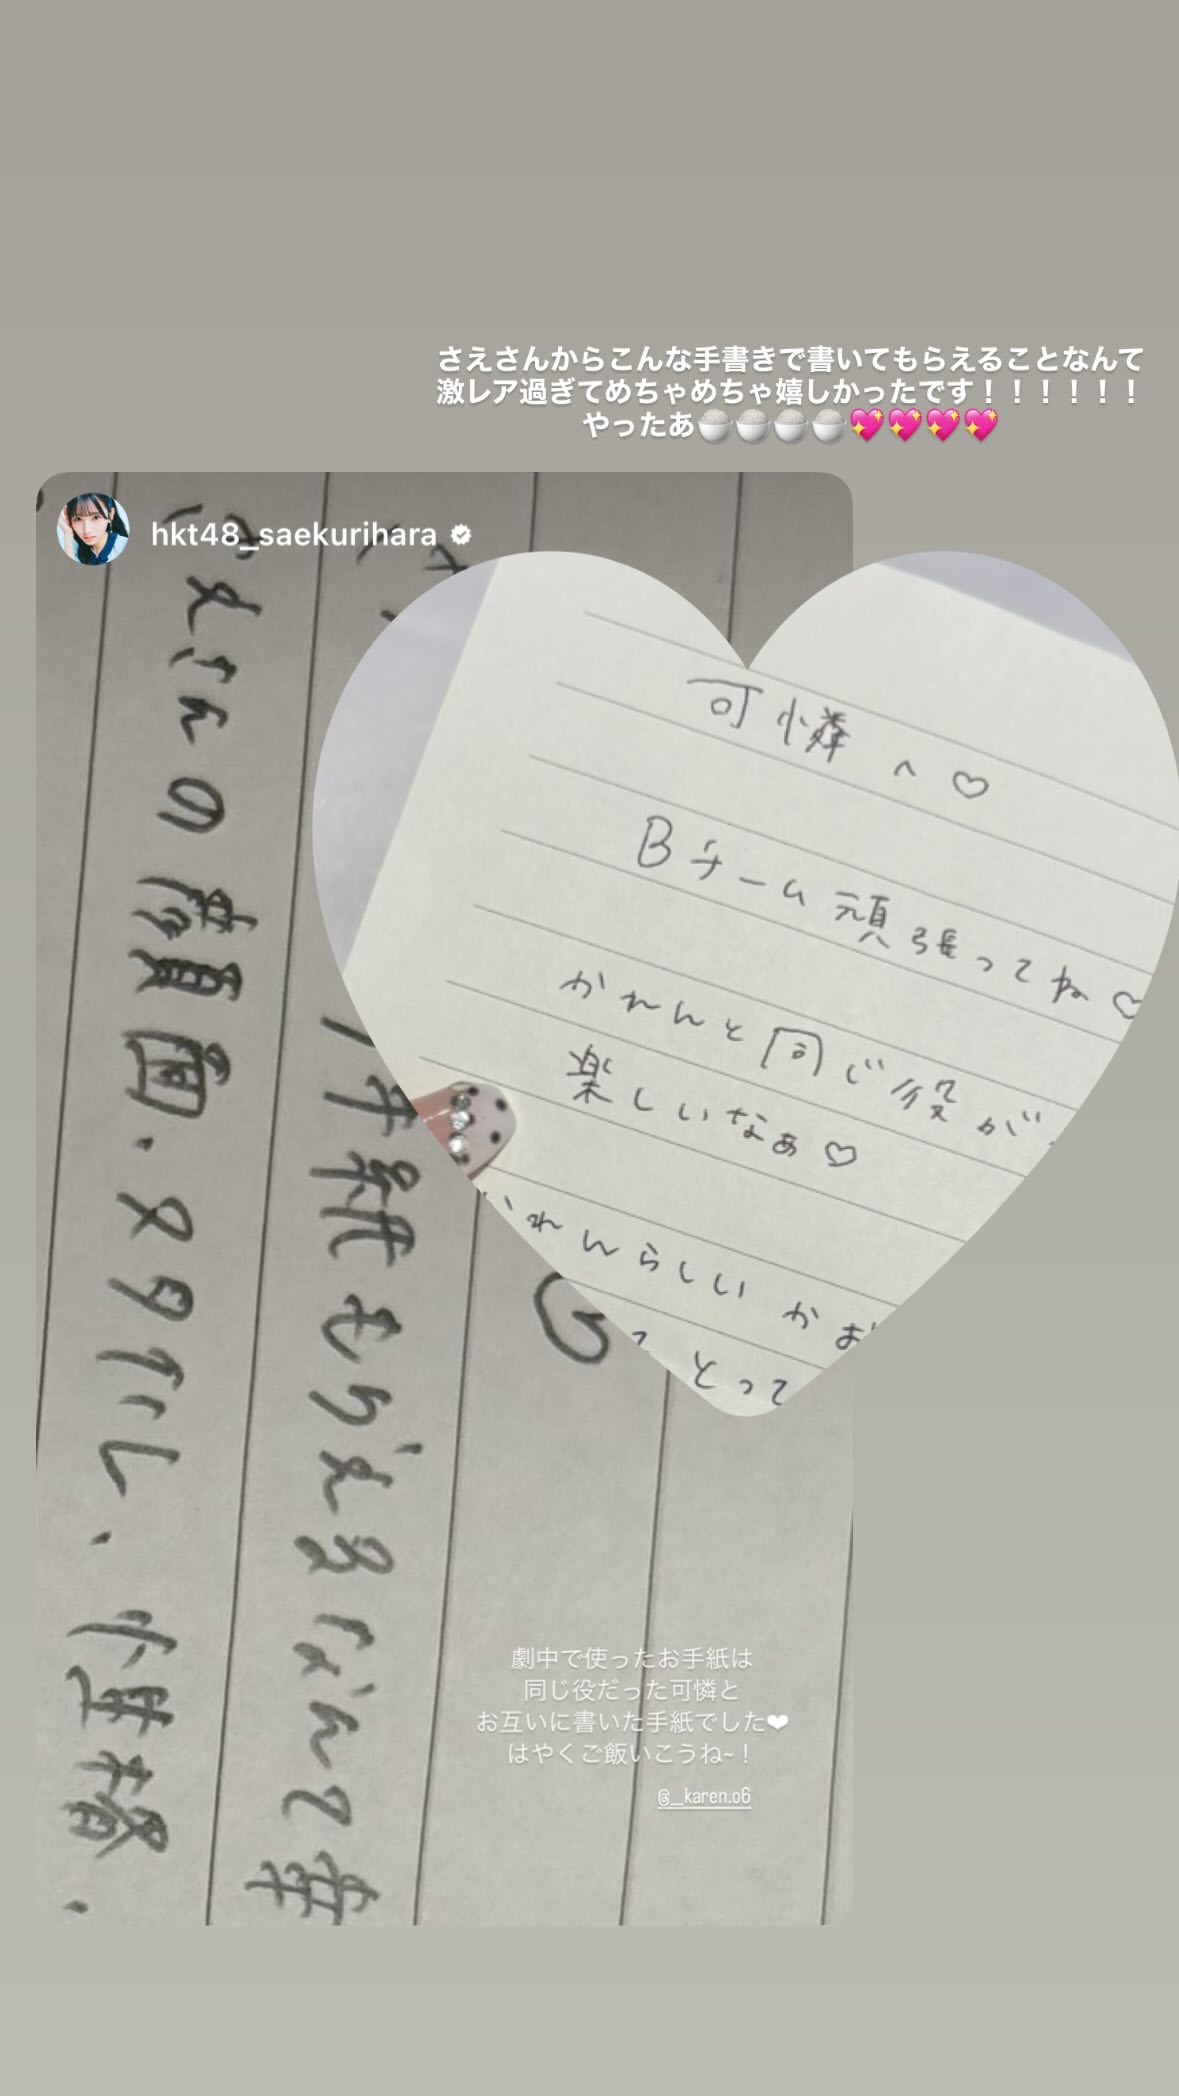 さえさんからこんな手書きで書いてもらえることなんて
激レア過ぎてめちゃめちゃ嬉しかったです！！！！！！
やったあ🍚🍚🍚🍚💖💖💖💖
hkt48_saekurihara
可憐へ♡
Bチーム頑張ってね♡
かれんと同じ役が
楽しいなぁ♡
かれんらしいかお
とって
手紙もらえるなんて幸
さんの顔面、スタイル、性格、
劇中で使ったお手紙は
同じ役だった可憐と
お互いに書いた手紙でした❤
はやくご飯いこうね~！
@_karen.o6